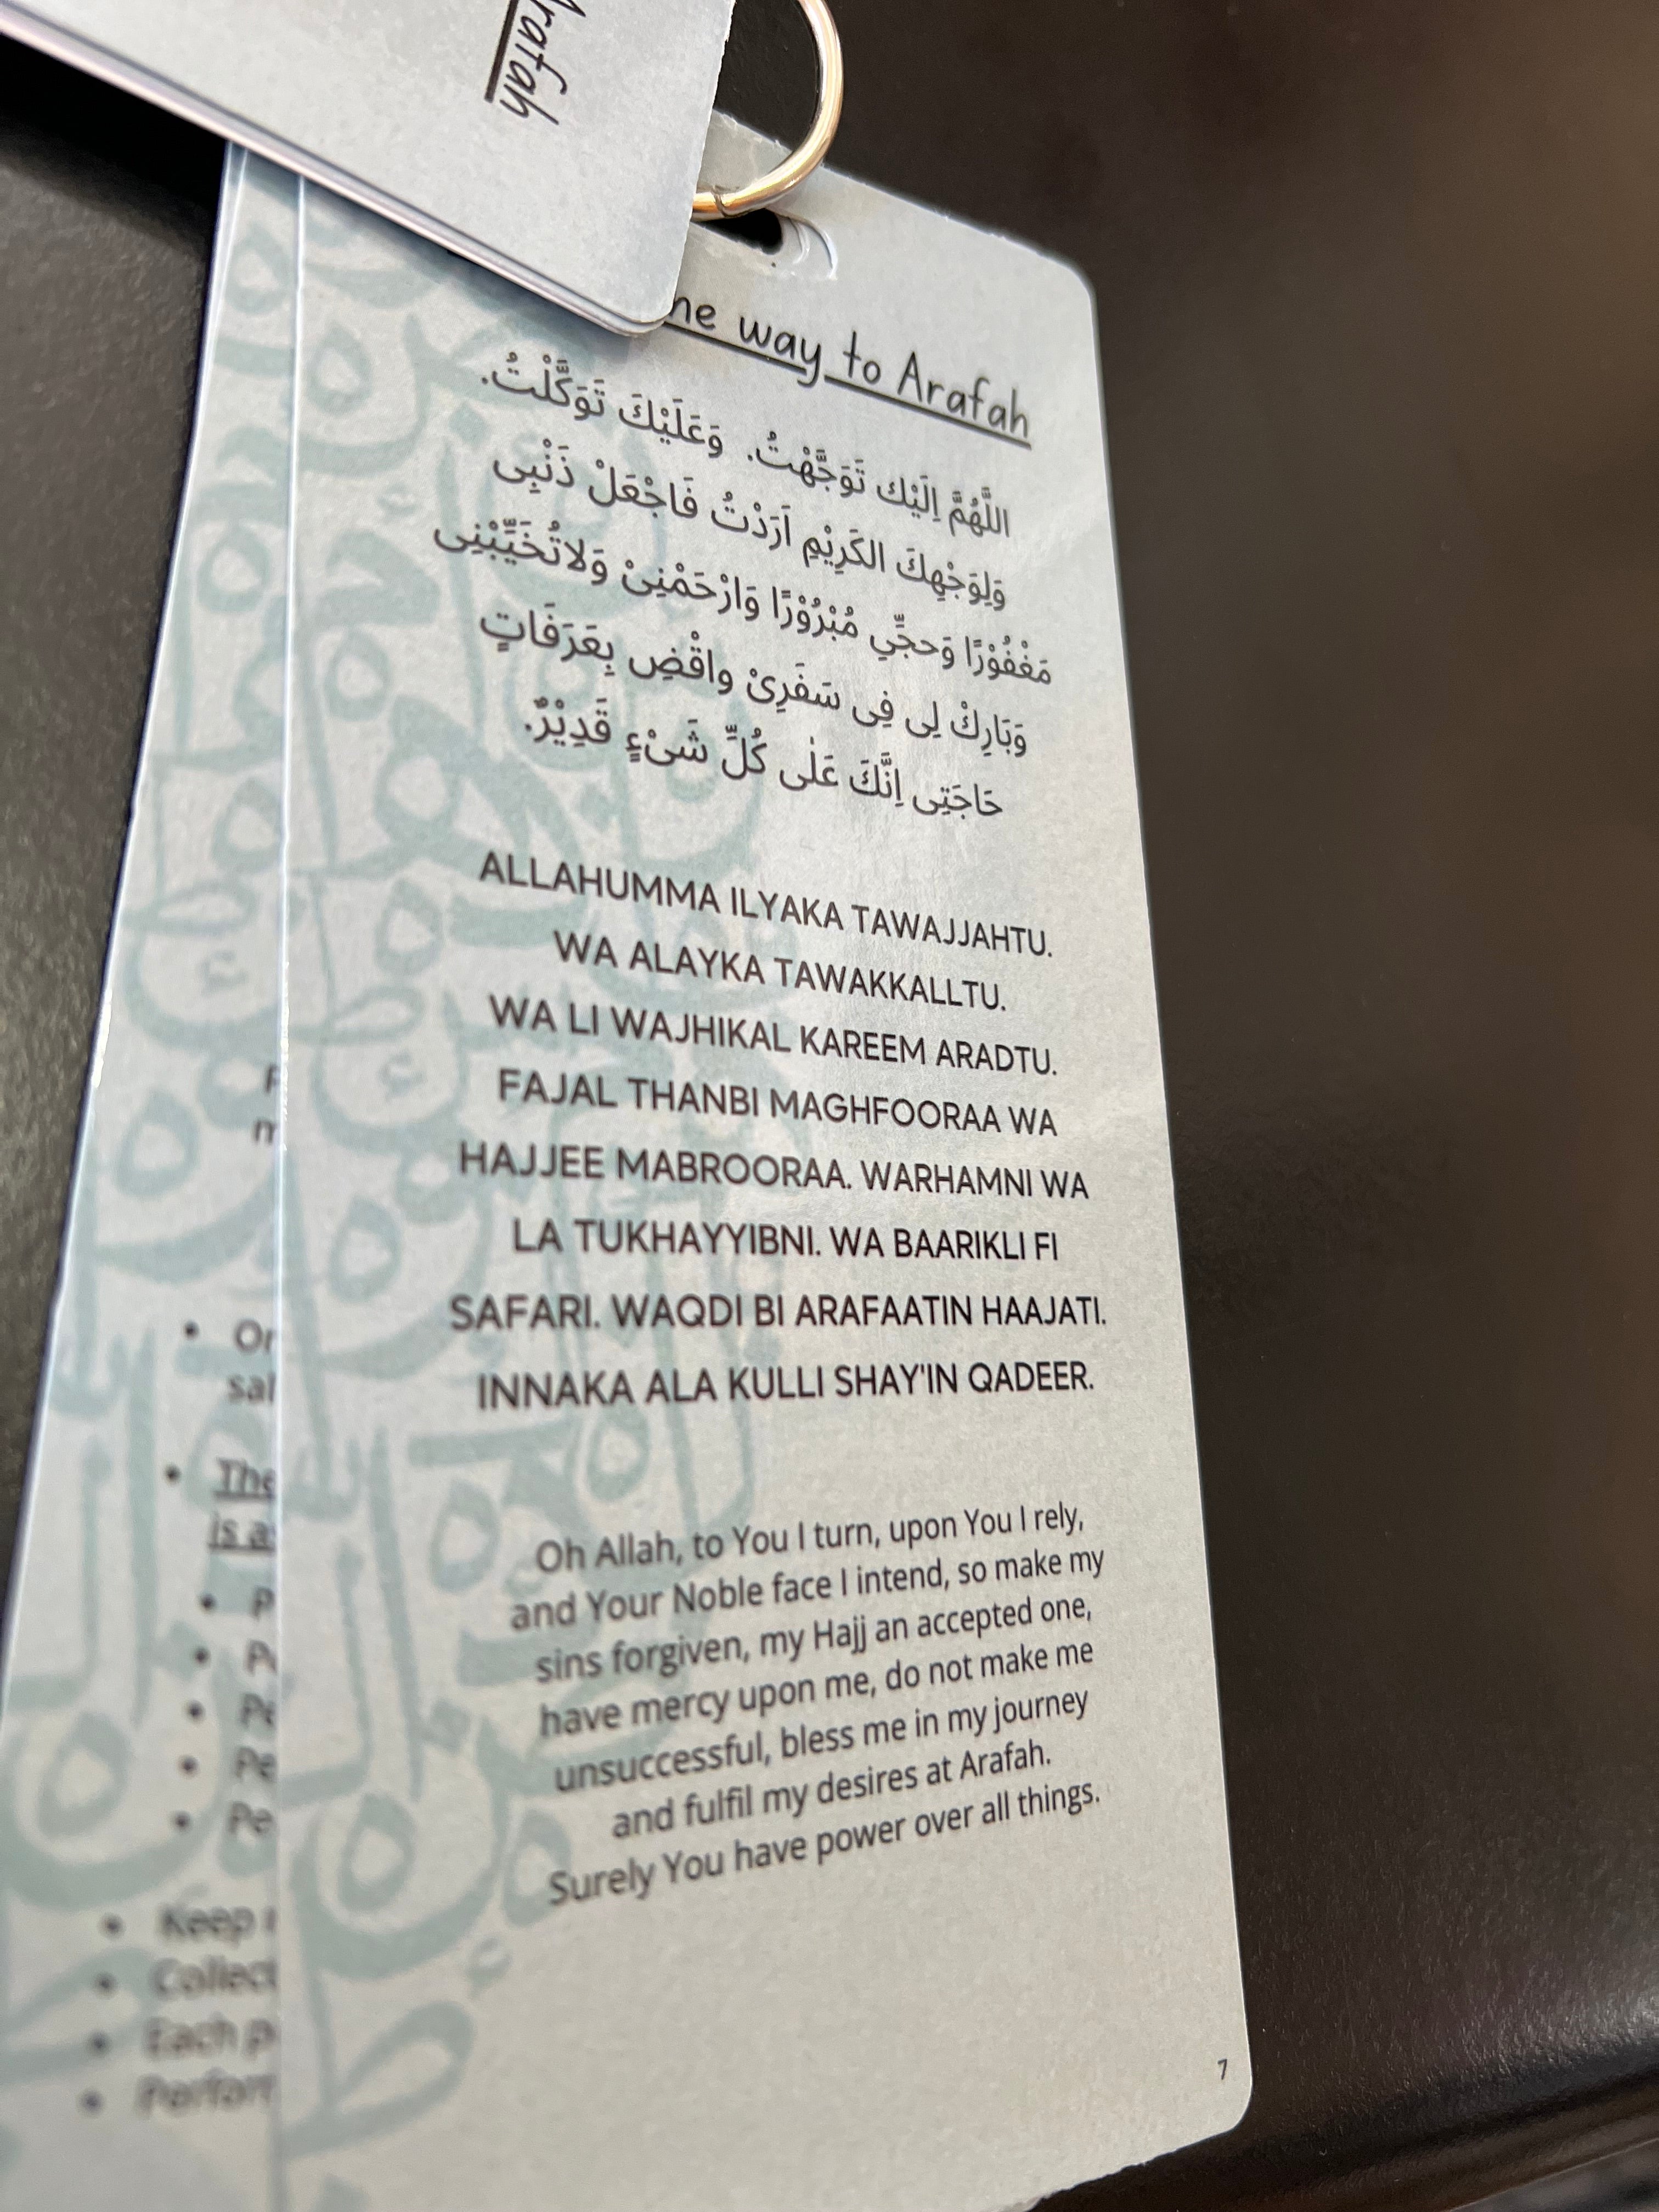 Arafah
way to Arafah
اللَّهُمَّ اِلَيْك تَوَجَّهْتُ. وَعَلَيْكَ تَوَكَّلْتُ.
وَلِوَجْهِكَ الكَرِيْمِ اَرَدْتُ فَاجْعَلْ ذَنْبِى
مَغْفُوْرًا وَحجِّي مُبْرُوْرًا وَارْحَمْنِىْ وَلاتُخَيِّبْنِى
وَبَارِكْ لِى فِى سَفَرِىْ واقْضِ بِعَرَفَاتٍ
حَاجَتِى اِنَّكَ عَلٰى كُلِّ شَىْءٍ قَدِيْرٌ.
ALLAHUMMA ILYAKA TAWAJJAHTU.
WA ALAYKA TAWAKKALLTU.
WA LI WAJHIKAL KAREEM ARADTU.
FAJAL THANBI MAGHFOORAA WA
HAJJEE MABROORAA. WARHAMNI WA
LA TUKHAYYIBNI. WA BAARIKLI FI
SAFARI. WAQDI BI ARAFAATIN HAAJATI.
INNAKA ALA KULLI SHAY'IN QADEER.
Oh Allah, to You I turn, upon You I rely,
and Your Noble face I intend, so make my
sins forgiven, my Hajj an accepted one,
have mercy upon me, do not make me
unsuccessful, bless me in my journey
and fulfil my desires at Arafah.
Surely You have power over all things.
7
The
is a
Keep
Each